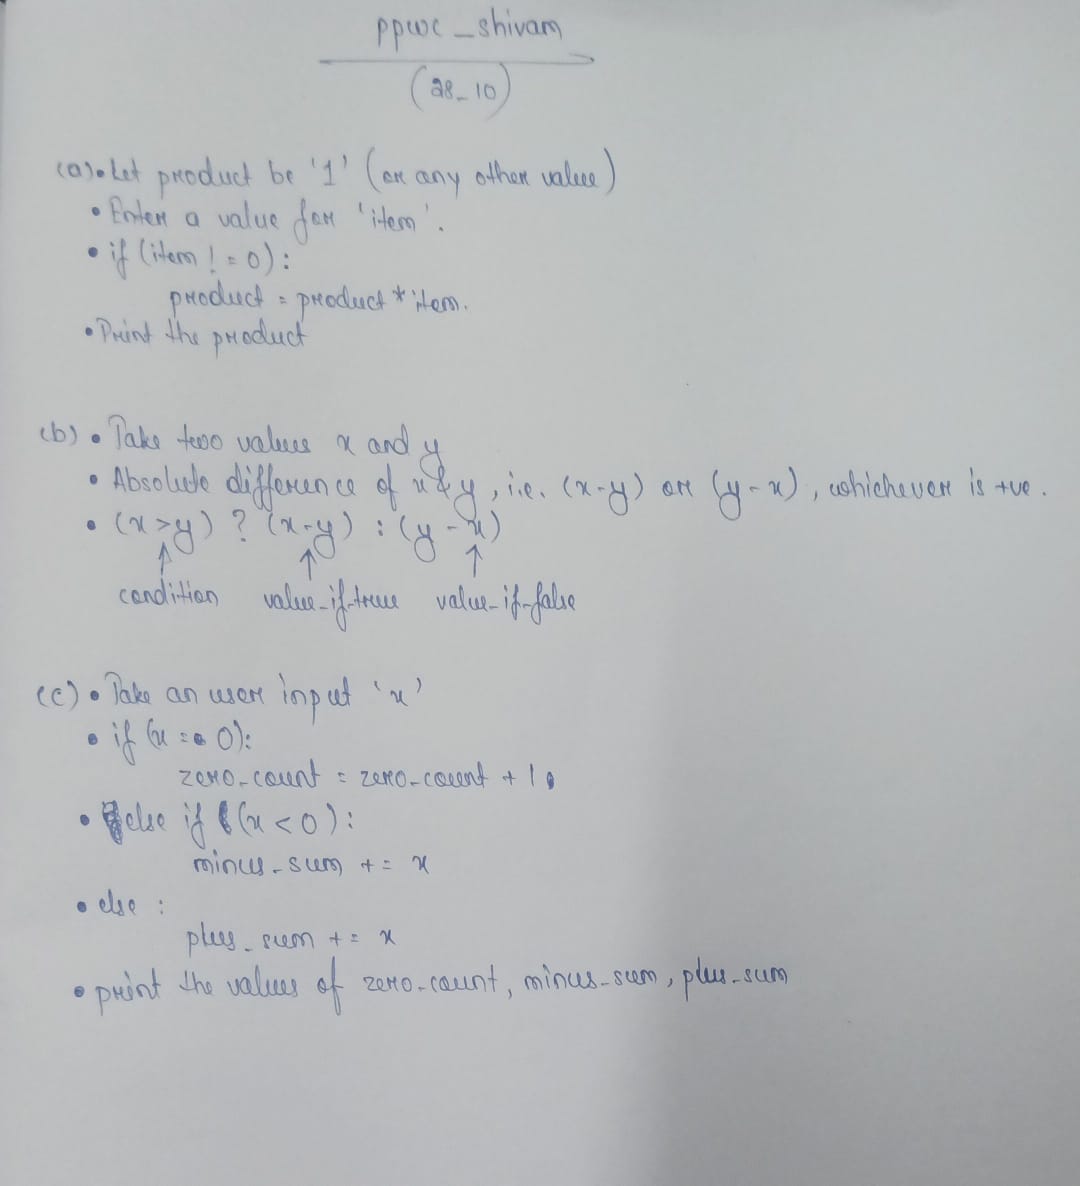 ppwc_shivam
(28_10)
(a) • Let product be '1' (or any other value)
• Enter a value for 'item'.
• if (item != 0):
product = product * item.
• Print the product
(b) • Take two values x and y
• Absolute difference of x & y, i.e. (x-y) or (y-x), whichever is +ve.
• (x>y) ? (x-y) : (y-x)
condition value_if_true value_if_false
(c) • Take an user input 'x'
• if (x == 0):
zero_count = zero_count + 1.
• else if (x < 0):
minus_sum += x
• else :
plus_sum += x
• print the values of zero_count, minus_sum, plus_sum